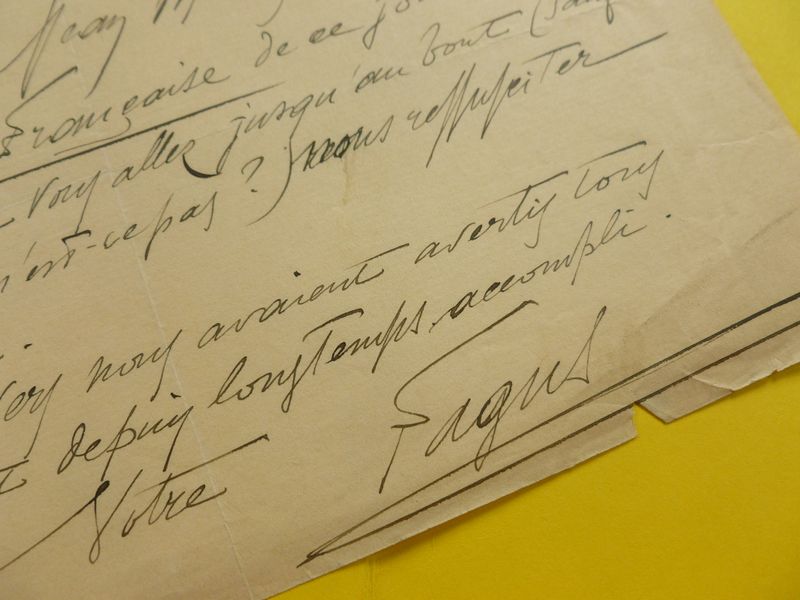 Jean M
Française de ce jo
Vous allez jusqu'au bout (sauf
n'est-ce pas ?) nous ressusciter
nous avaient avertis tous
depuis longtemps accompli.
Votre
Fagus